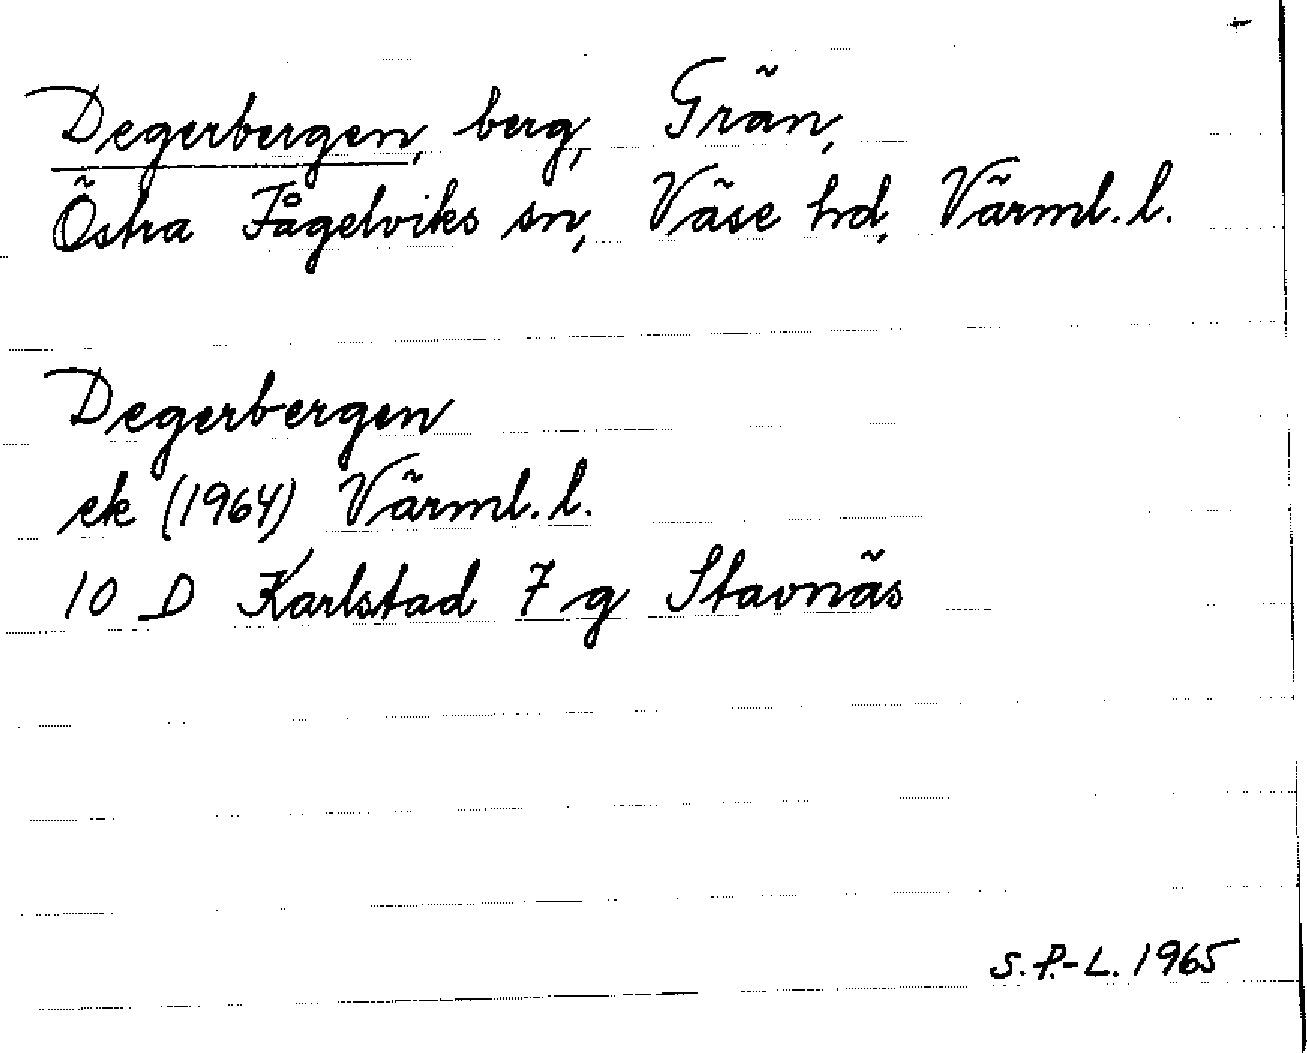 Degerbergen, berg, Grän,
Östra Fågelviks sn, Väse hd, Värml. l.
Degerbergen
ek (1964) Värml. l.
10 D Karlstad 7 g Stavnäs
S. P.-L. 1965